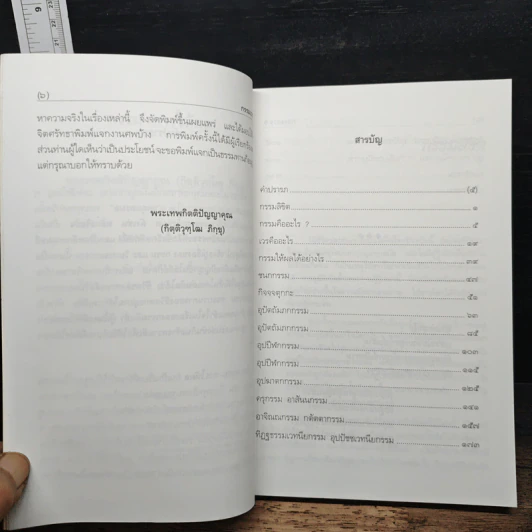 (๖)
หาความจริงในเรื่องเหล่านี้ จึงจัดพิมพ์ขึ้นเผยแพร่ และได้
จิตศรัทธาพิมพ์แจกงานศพบ้าง การพิมพ์ครั้งนี้ได้มีผู้
ส่วนท่านผู้ใดเห็นว่าเป็นประโยชน์ จะขอพิมพ์แจกเป็นธรรมทาน
แต่กรุณาบอกให้ทราบด้วย
พระเทพกิตติปัญญาคุณ
(กิตฺติวุฑฺโฒ ภิกฺขุ)
สารบัญ
คำปรารภ (๕)
กรรมลิขิต ๑
กรรมคืออะไร ? ๕
เวรคืออะไร ๑๙
กรรมให้ผลได้อย่างไร ๓๙
ชนกกรรม ๔๗
กิจจจตุกกะ ๕๑
อุปัตถัมภกกรรม ๖๓
อุปัตถัมภกกรรม ๘๕
อุปปีฬกกรรม ๑๐๓
อุปปีฬกกรรม ๑๑๕
อุปฆาตกกรรม ๑๒๕
ครุกรรม อาสันนกรรม ๑๔๑
อาจิณณกรรม กตัตตากรรม ๑๕๗
ทิฏฐธรรมเวทนียกรรม อุปปัชชเวทนียกรรม ๑๗๓